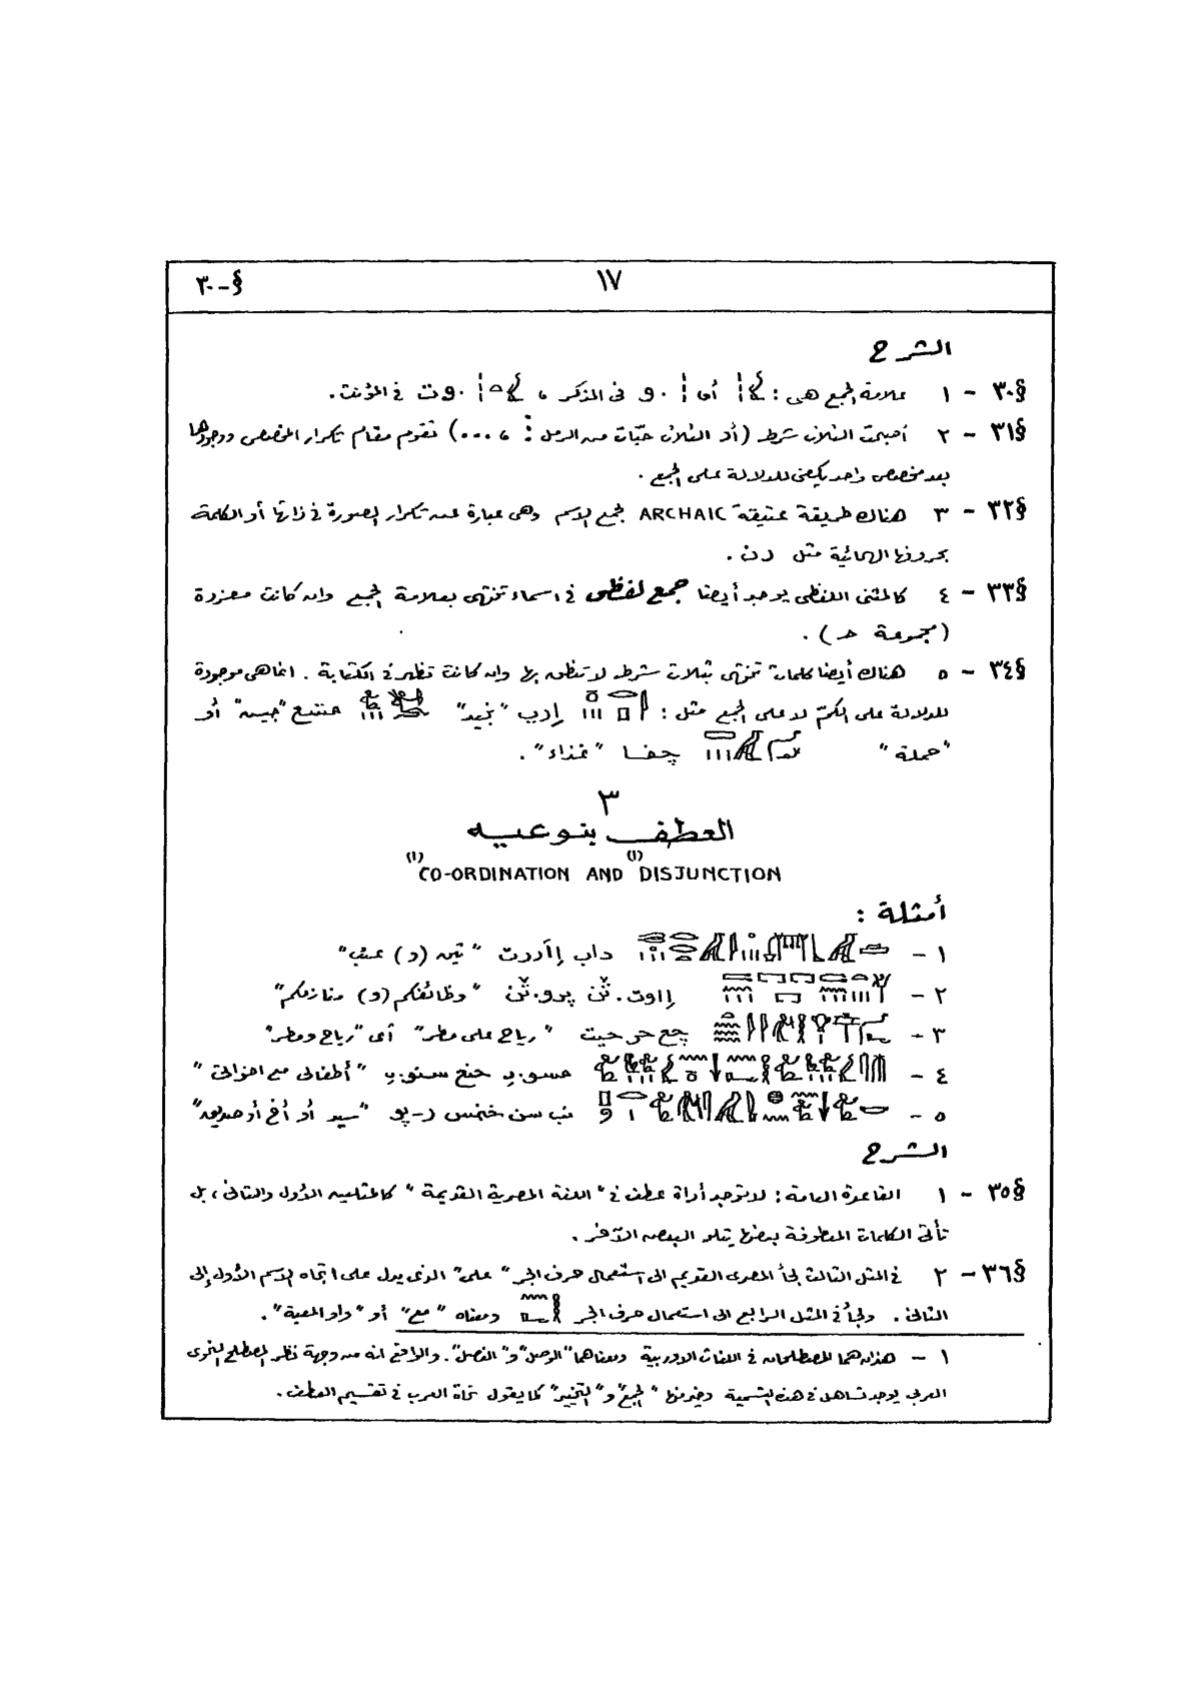 §-٣٠ ١٧
الشرح
§٣٠ - ١ علامة الجمع هى : أى ٠و فى المذكر ، ٠وت فى المؤنث.
§٣١ - ٢ أصبحت الثلاث شرط (أو الثلاث حبّات من الرمل ، ...) تقوم مقام تكرار المخصص ووجودها
بعد مخصص واحد يكفى للدلالة على الجمع .
§٣٢ - ٣ هناك طريقة عتيقة ARCHAIC لجمع الاسم وهى عبارة عن تكرار الصورة فى ذاتها أو الكلمة
بحروفها الهجائية مثل رن .
§٣٣ - ٤ كالمثنى اللفظى يوجد أيضا جمع لفظى فى اسماء تنتهى بعلامة الجمع وان كانت مفردة
(مجموعة ح) .
§٣٤ - ٥ هناك أيضا كلمات تنتهى بثلاث شرط لا تنطق بها وان كانت تظهر فى الكتابة . انما هى موجودة
للدلالة على الكمّ لا على الجمع مثل : إرب "نبيذ" منفع "جيش" أو
"حملة" چفا "غذاء" .
٣
العطف بنوعيه
(١) (١)
CO-ORDINATION AND DISJUNCTION
أمثلة :
١ - داب إأررت "تين (و) عنب"
٢ - إاوت.ثن پرو.ثن "وظائفكم (و) منازلكم"
٣ - چع حر حيت "رياح على مطر" أى "رياح ومطر"
٤ - مسو.ى حنع سنو.ى "أطفالى مع اخواتى"
٥ - نب سن خنمس ر-پو "سيد أو أخ أو صديق"
الشرح
§٣٥ - ١ القاعدة العامة : لا توجد أداة عطف فى "اللغة المصرية القديمة" كالمثلين الأول والثانى ، بل
تأتى الكلمات المعطوفة بعضها يتلو البعض الآخر .
§٣٦ - ٢ فى المثل الثالث لجأ المصرى القديم الى استعمال حرف الجر "على" الذى يدل على اتجاه الاسم الأول إلى
الثانى . ولجأ فى المثل الرابع الى استعمال حرف الجر ومعناه "مع" أو "واو المعية" .
١ - هذان هما المصطلحان فى اللغات الاوربية ومعناهما "الوصل" و"الفصل". والواقع انه من وجهة نظر المصطلح النحوى
العربى يوجد تساهل فى هذه التسمية وخير منها "الجمع" و"التخيير" كما يقول نحاة العرب فى تقسيم العطف .